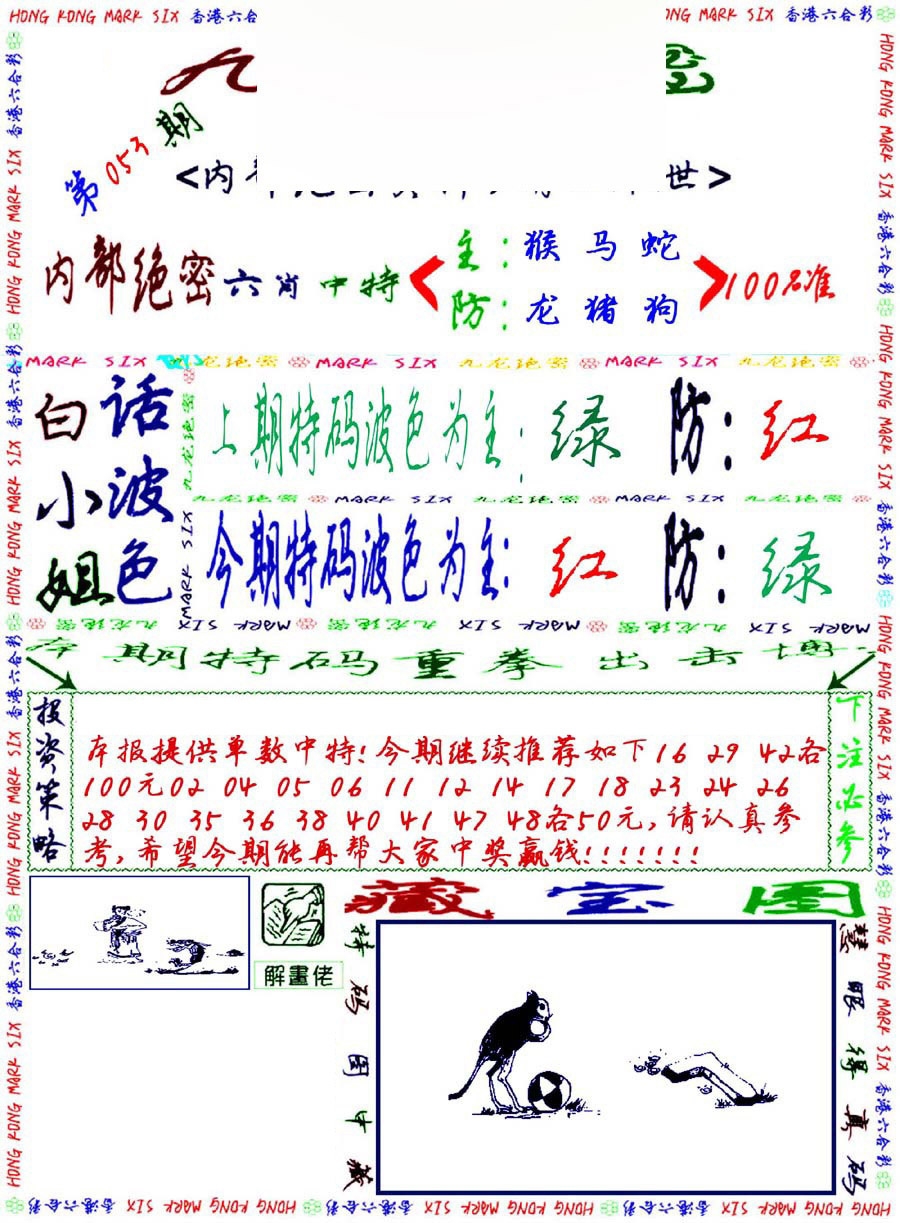 HONG KONG MARK SIX 香港六合彩
第053期
<内
世>
内部绝密六肖 中特
主：猴 马 蛇
防：龙 猪 狗
100%准
MARK SIX 九龙绝密 MARK SIX 九龙绝密 MARK SIX 九龙绝密
白话
小波
姐色
上期特码波色为主：绿 防：红
九龙绝密 MARK SIX 九龙绝密 MARK SIX 九龙绝密
今期特码波色为主：红 防：绿
MARK SIX 九龙绝密 MARK SIX 九龙绝密 MARK SIX 九龙绝密
期特码重拳出击
投资策略
本报提供单数中特!今期继续推荐如下16 29 42各
100元02 04 05 06 11 12 14 17 18 23 24 26
28 30 35 36 38 40 41 47 48各50元,请认真参
考,希望今期能再帮大家中奖赢钱!!!!!!!
下注必参
解畫佬
藏宝图
特码图中藏
慧眼得真码
HONG KONG MARK SIX 香港六合彩